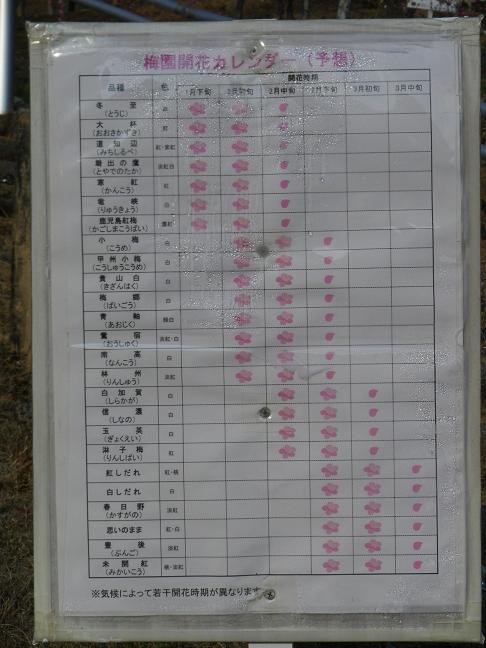 梅園開花カレンダー（予想）
品種 色 開花時期
1月下旬 2月初旬 2月中旬 2月下旬 3月初旬 3月中旬
冬至 白
（とうじ）
大杯 紅
（おおさかずき）
道知辺 紅・紫紅
（みちしるべ）
鶏出の鷹 淡紅白
（とやでのたか）
寒紅 紅
（かんこう）
竜峡 白
（りゅうきょう）
鹿児島紅梅 濃紅
（かごしまこうばい）
小梅 白
（こうめ）
甲州小梅 白
（こうしゅうこうめ）
貴山白 白
（きざんはく）
梅郷 白
（ばいごう）
青軸 緑白
（あおじく）
鶯宿 淡紅・白
（おうしゅく）
南高 白
（なんこう）
林州 淡紅
（りんしゅう）
白加賀 白
（しらかが）
信濃 白
（しなの）
玉英 白
（ぎょくえい）
淋子梅 紅
（りんしばい）
紅しだれ 紅・桃
白しだれ 白
春日野 淡紅
（かすがの）
思いのまま 紅・白
豊後 淡紅
（ぶんご）
未開紅 桃・淡紅
（みかいこう）
※気候によって若干開花時期が異なります。